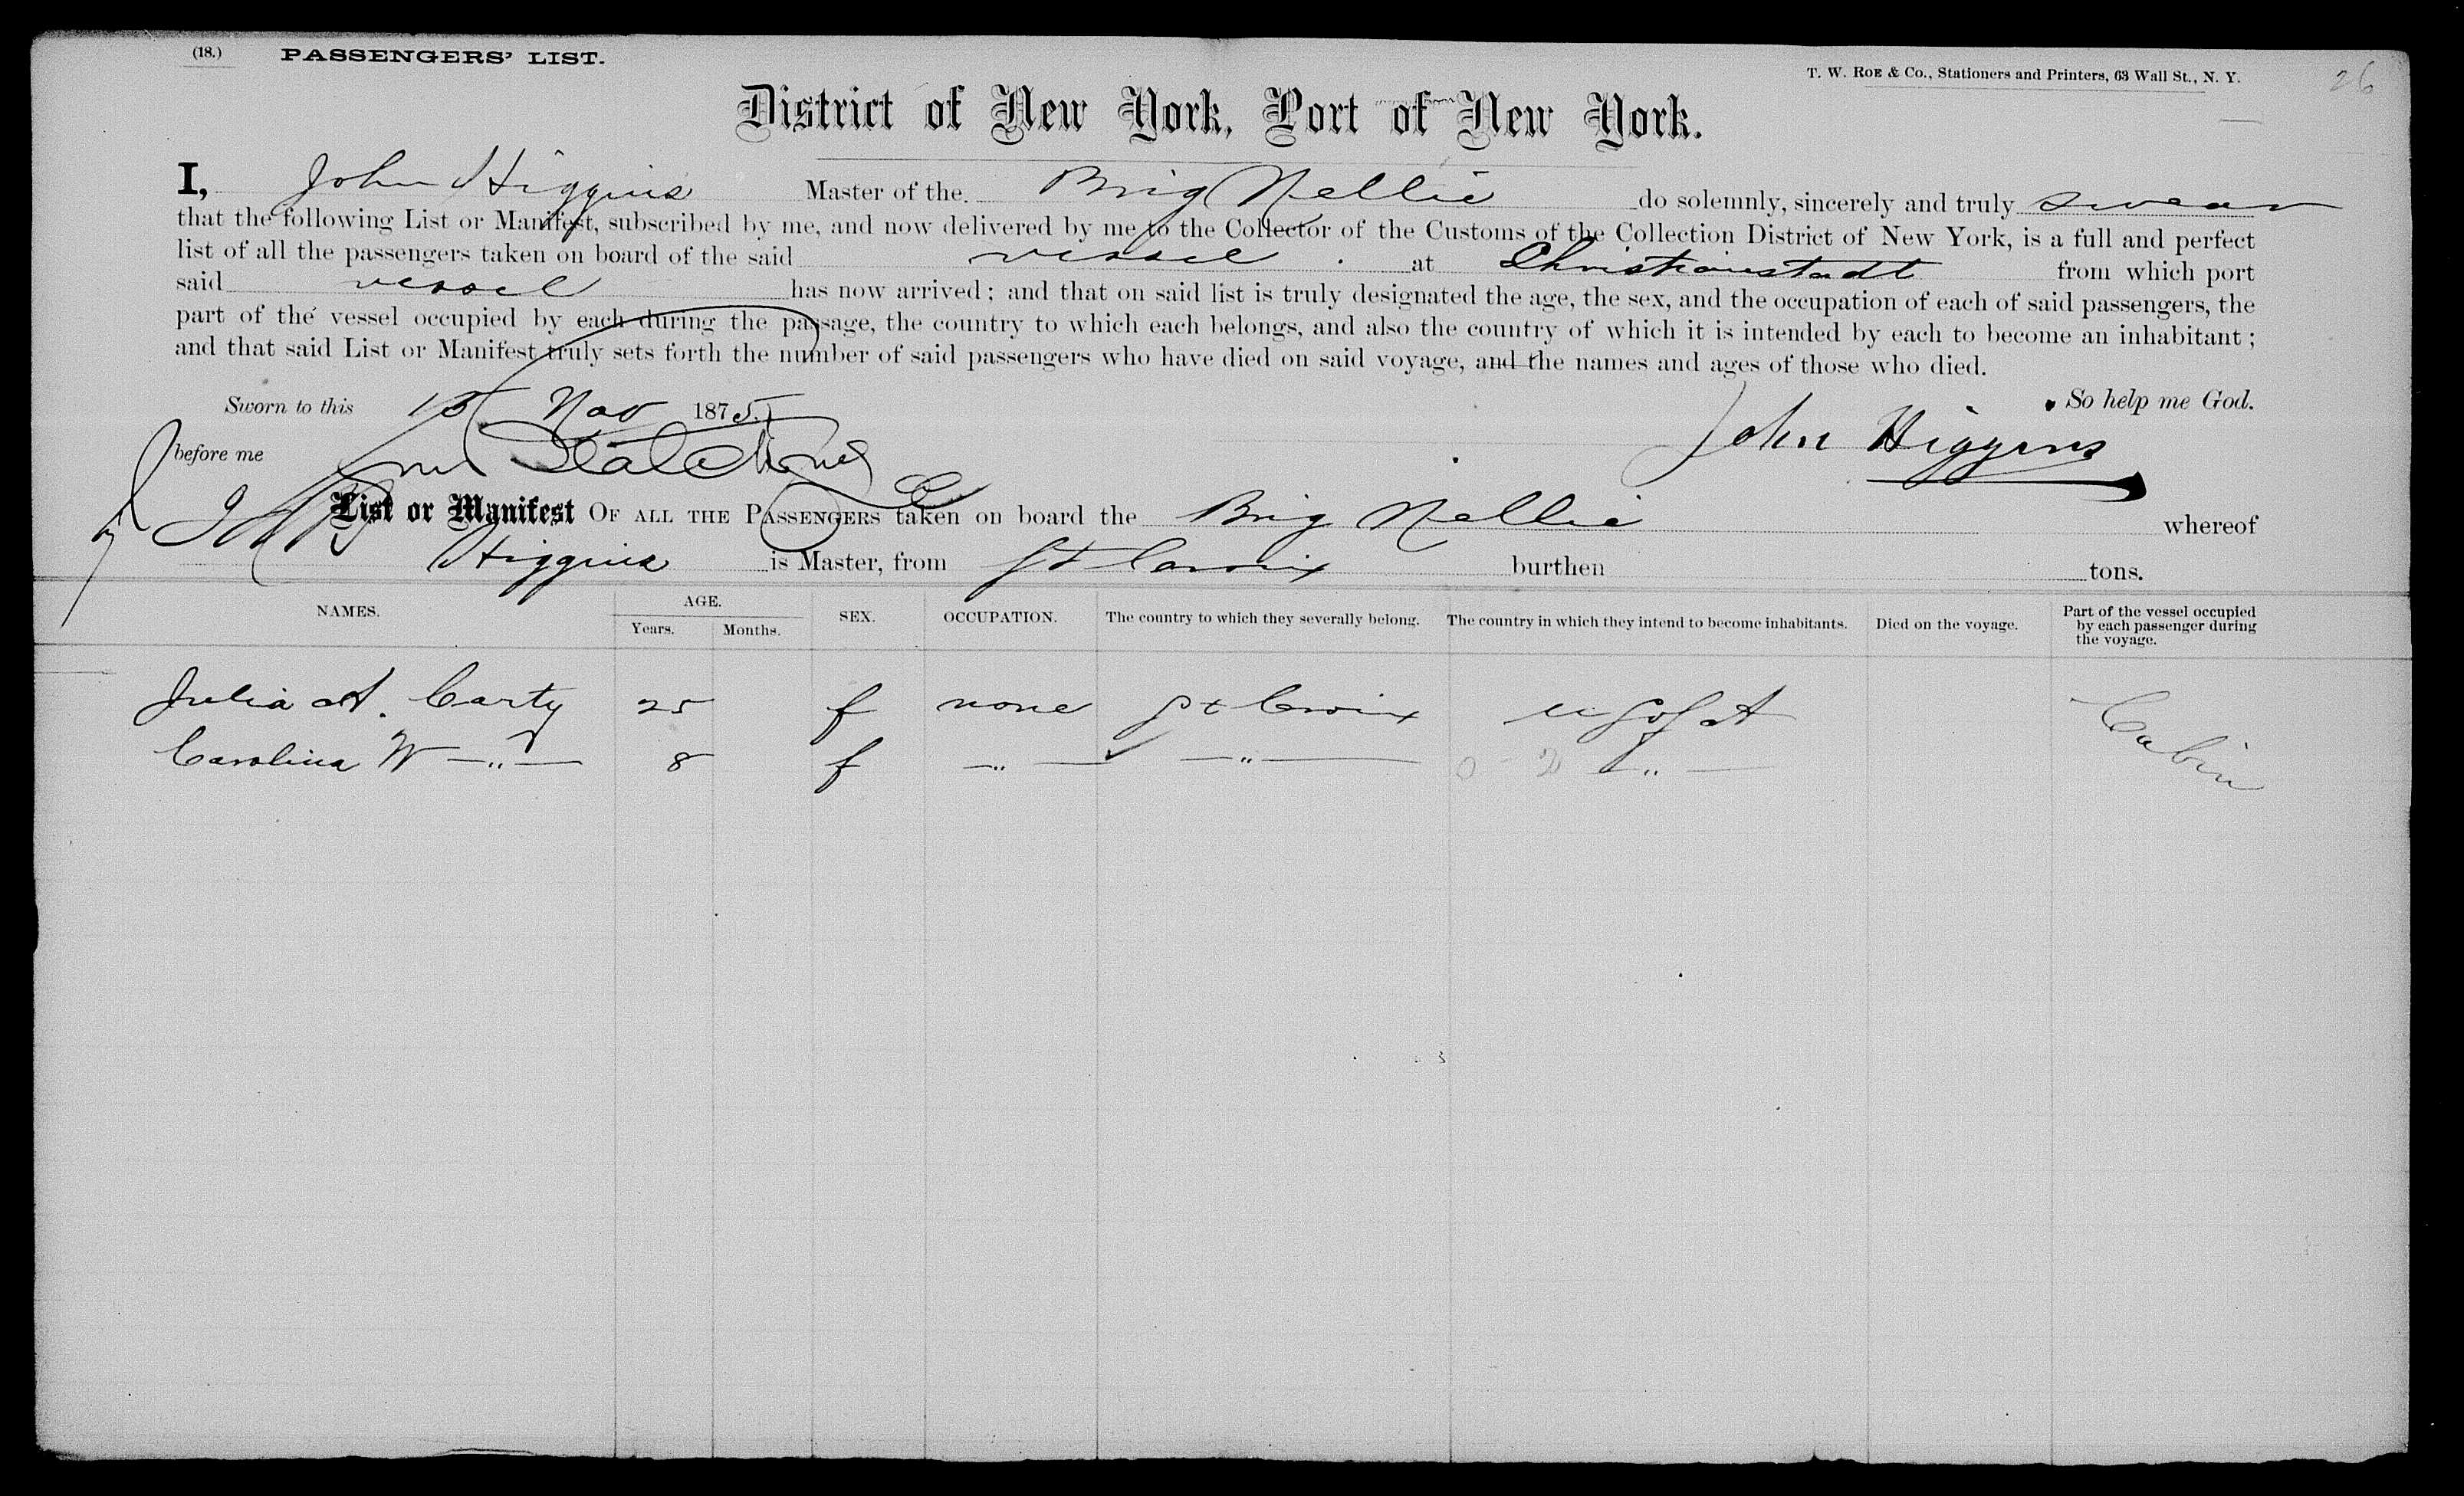 (18.) PASSENGERS' LIST.
T. W. Roe & Co., Stationers and Printers, 63 Wall St., N. Y. 26
District of New York, Port of New York.
I, John Higgins Master of the Brig Nellie do solemnly, sincerely and truly swear
that the following List or Manifest, subscribed by me, and now delivered by me to the Collector of the Customs of the Collection District of New York, is a full and perfect
list of all the passengers taken on board of the said vessel at Christianstadt from which port
said vessel has now arrived; and that on said list is truly designated the age, the sex, and the occupation of each of said passengers, the
part of the vessel occupied by each during the passage, the country to which each belongs, and also the country of which it is intended by each to become an inhabitant;
and that said List or Manifest truly sets forth the number of said passengers who have died on said voyage, and the names and ages of those who died.
Sworn to this 15 Nov 1875 So help me God.
before me John Higgins
List or Manifest OF ALL THE PASSENGERS taken on board the Brig Nellie whereof
Higgins is Master, from St Croix burthen tons.
NAMES. AGE. Years. Months. SEX. OCCUPATION. The country to which they severally belong. The country in which they intend to become inhabitants. Died on the voyage. Part of the vessel occupied by each passenger during the voyage.
Julia A. Carty 25 f none St Croix U S of A Cabin
Carolina W —"— 8 f —"— —"— —"—